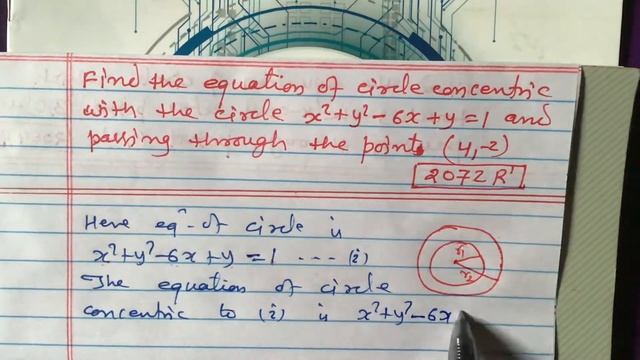 Find the equation of circle concentric
with the circle x²+y²-6x+y=1 and
passing through the point (4,-2)
2072 R'
Here eqⁿ of circle is
x²+y²-6x+y=1 --- (i)
The equation of circle
concentric to (i) is x²+y²-6x
r₁
r₂